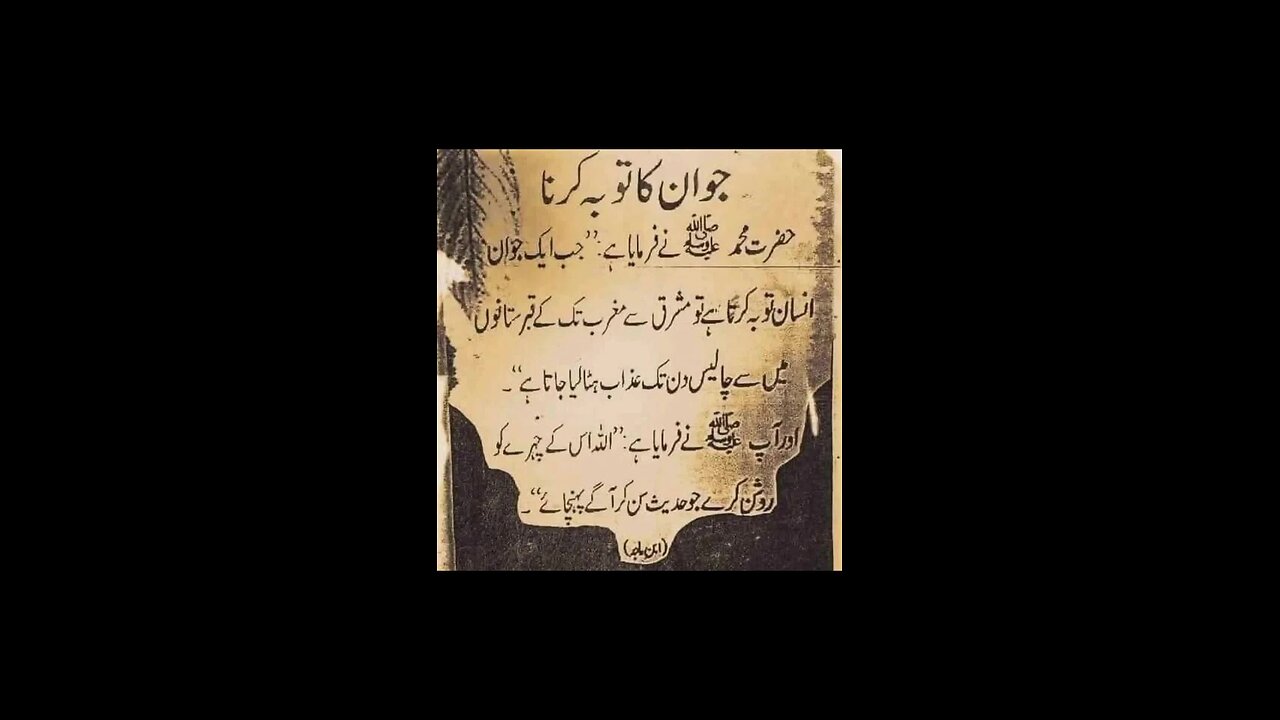 جوان کا توبہ کرنا
حضرت محمد ﷺ نے فرمایا ہے: ”جب ایک جوان
انسان توبہ کرتا ہے تو مشرق سے مغرب تک کے قبرستانوں
میں سے چالیس دن تک عذاب ہٹا لیا جاتا ہے“۔
اور آپ ﷺ نے فرمایا ہے: ”اللہ اس کے چہرے کو
روشن کرے جو حدیث سن کر آگے پہنچائے“۔
(ابن ماجہ)